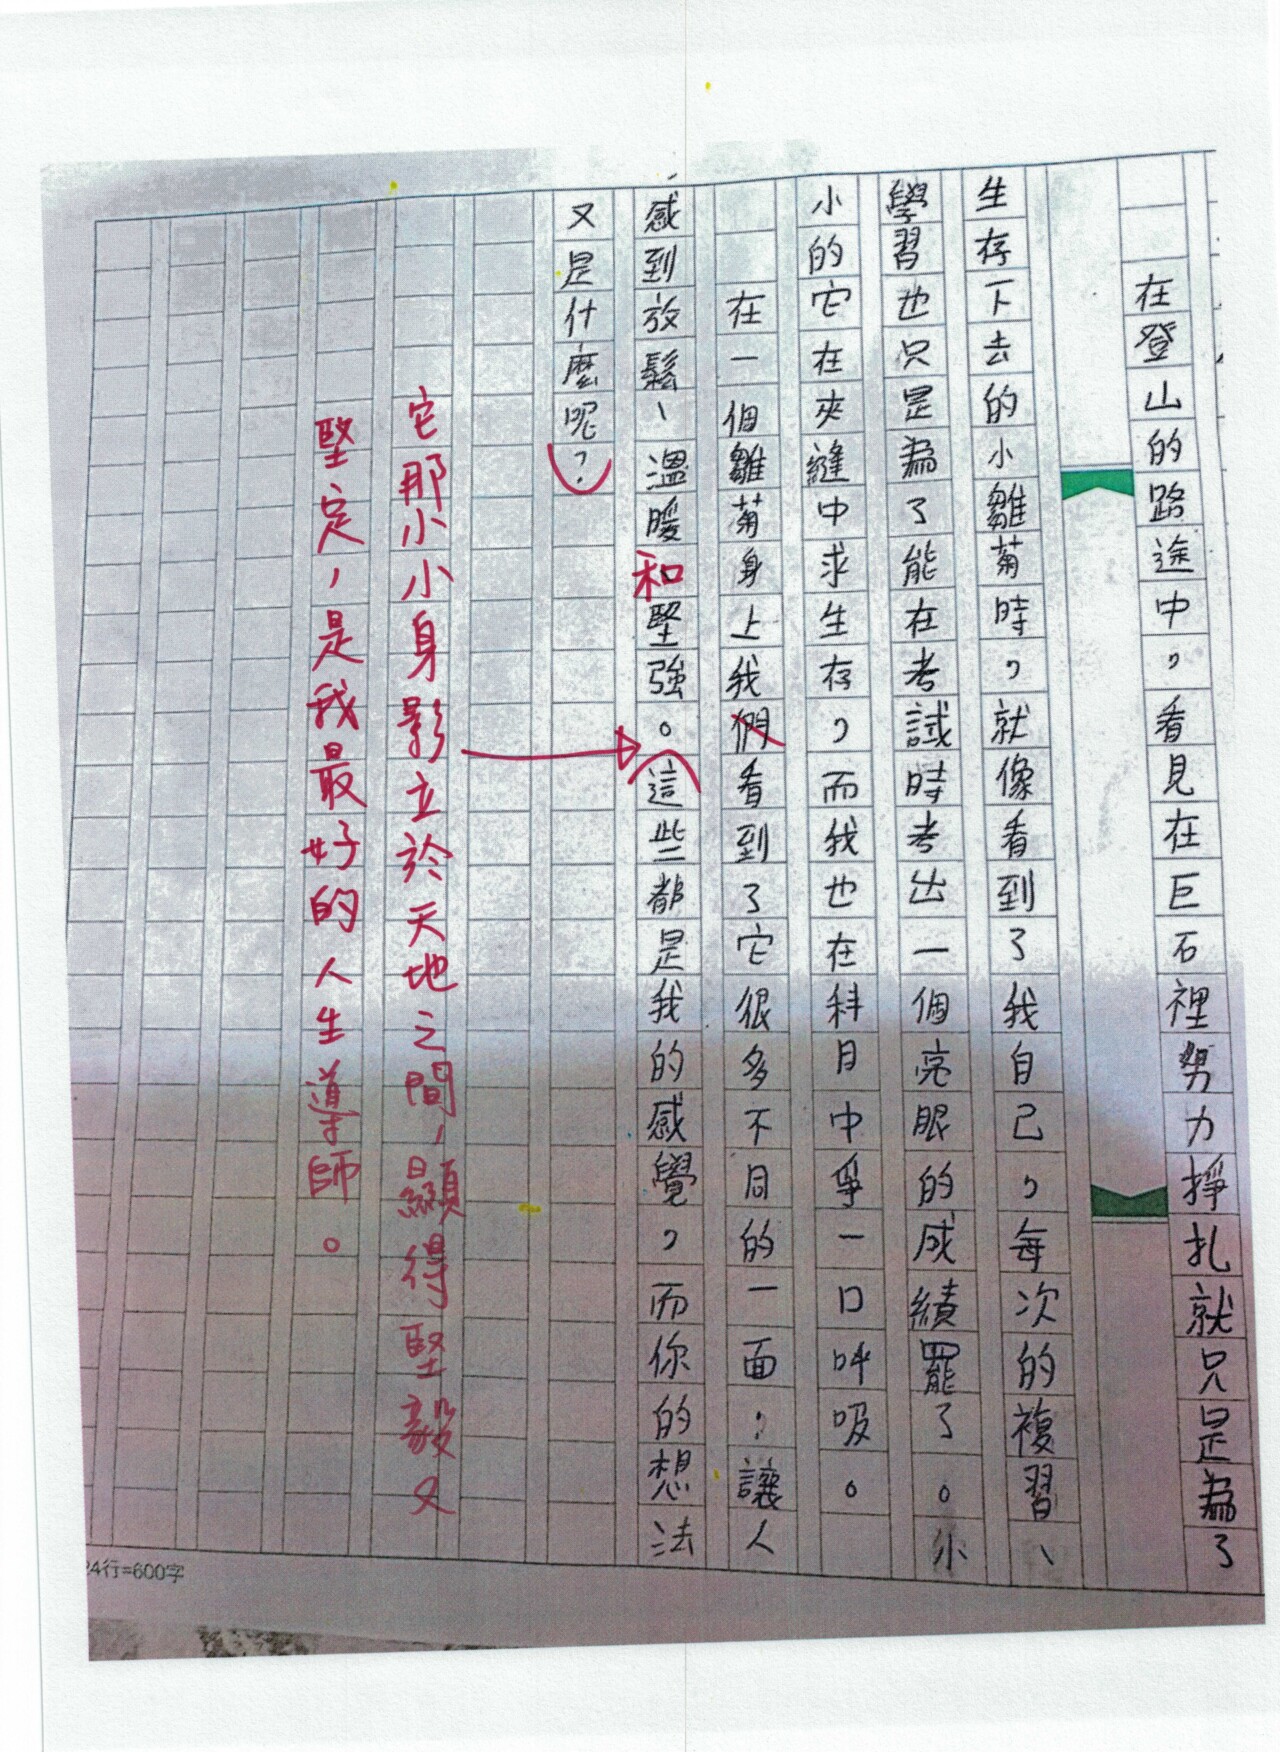 在登山的路途中，看見在巨石裡努力掙扎就只是為了
生存下去的小雛菊時，就像看到了我自己，每次的複習、
學習也只是為了能在考試時考出一個亮眼的成績罷了。小
小的它在夾縫中求生存，而我也在科目中爭一口呼吸。
在一個雛菊身上我們看到了它很多不同的一面，讓人
感到放鬆、溫暖和堅強。這些都是我的感覺，而你的想法
又是什麼呢？
它那小小身影立於天地之間，顯得堅毅又
堅定，是我最好的人生導師。
24行=600字